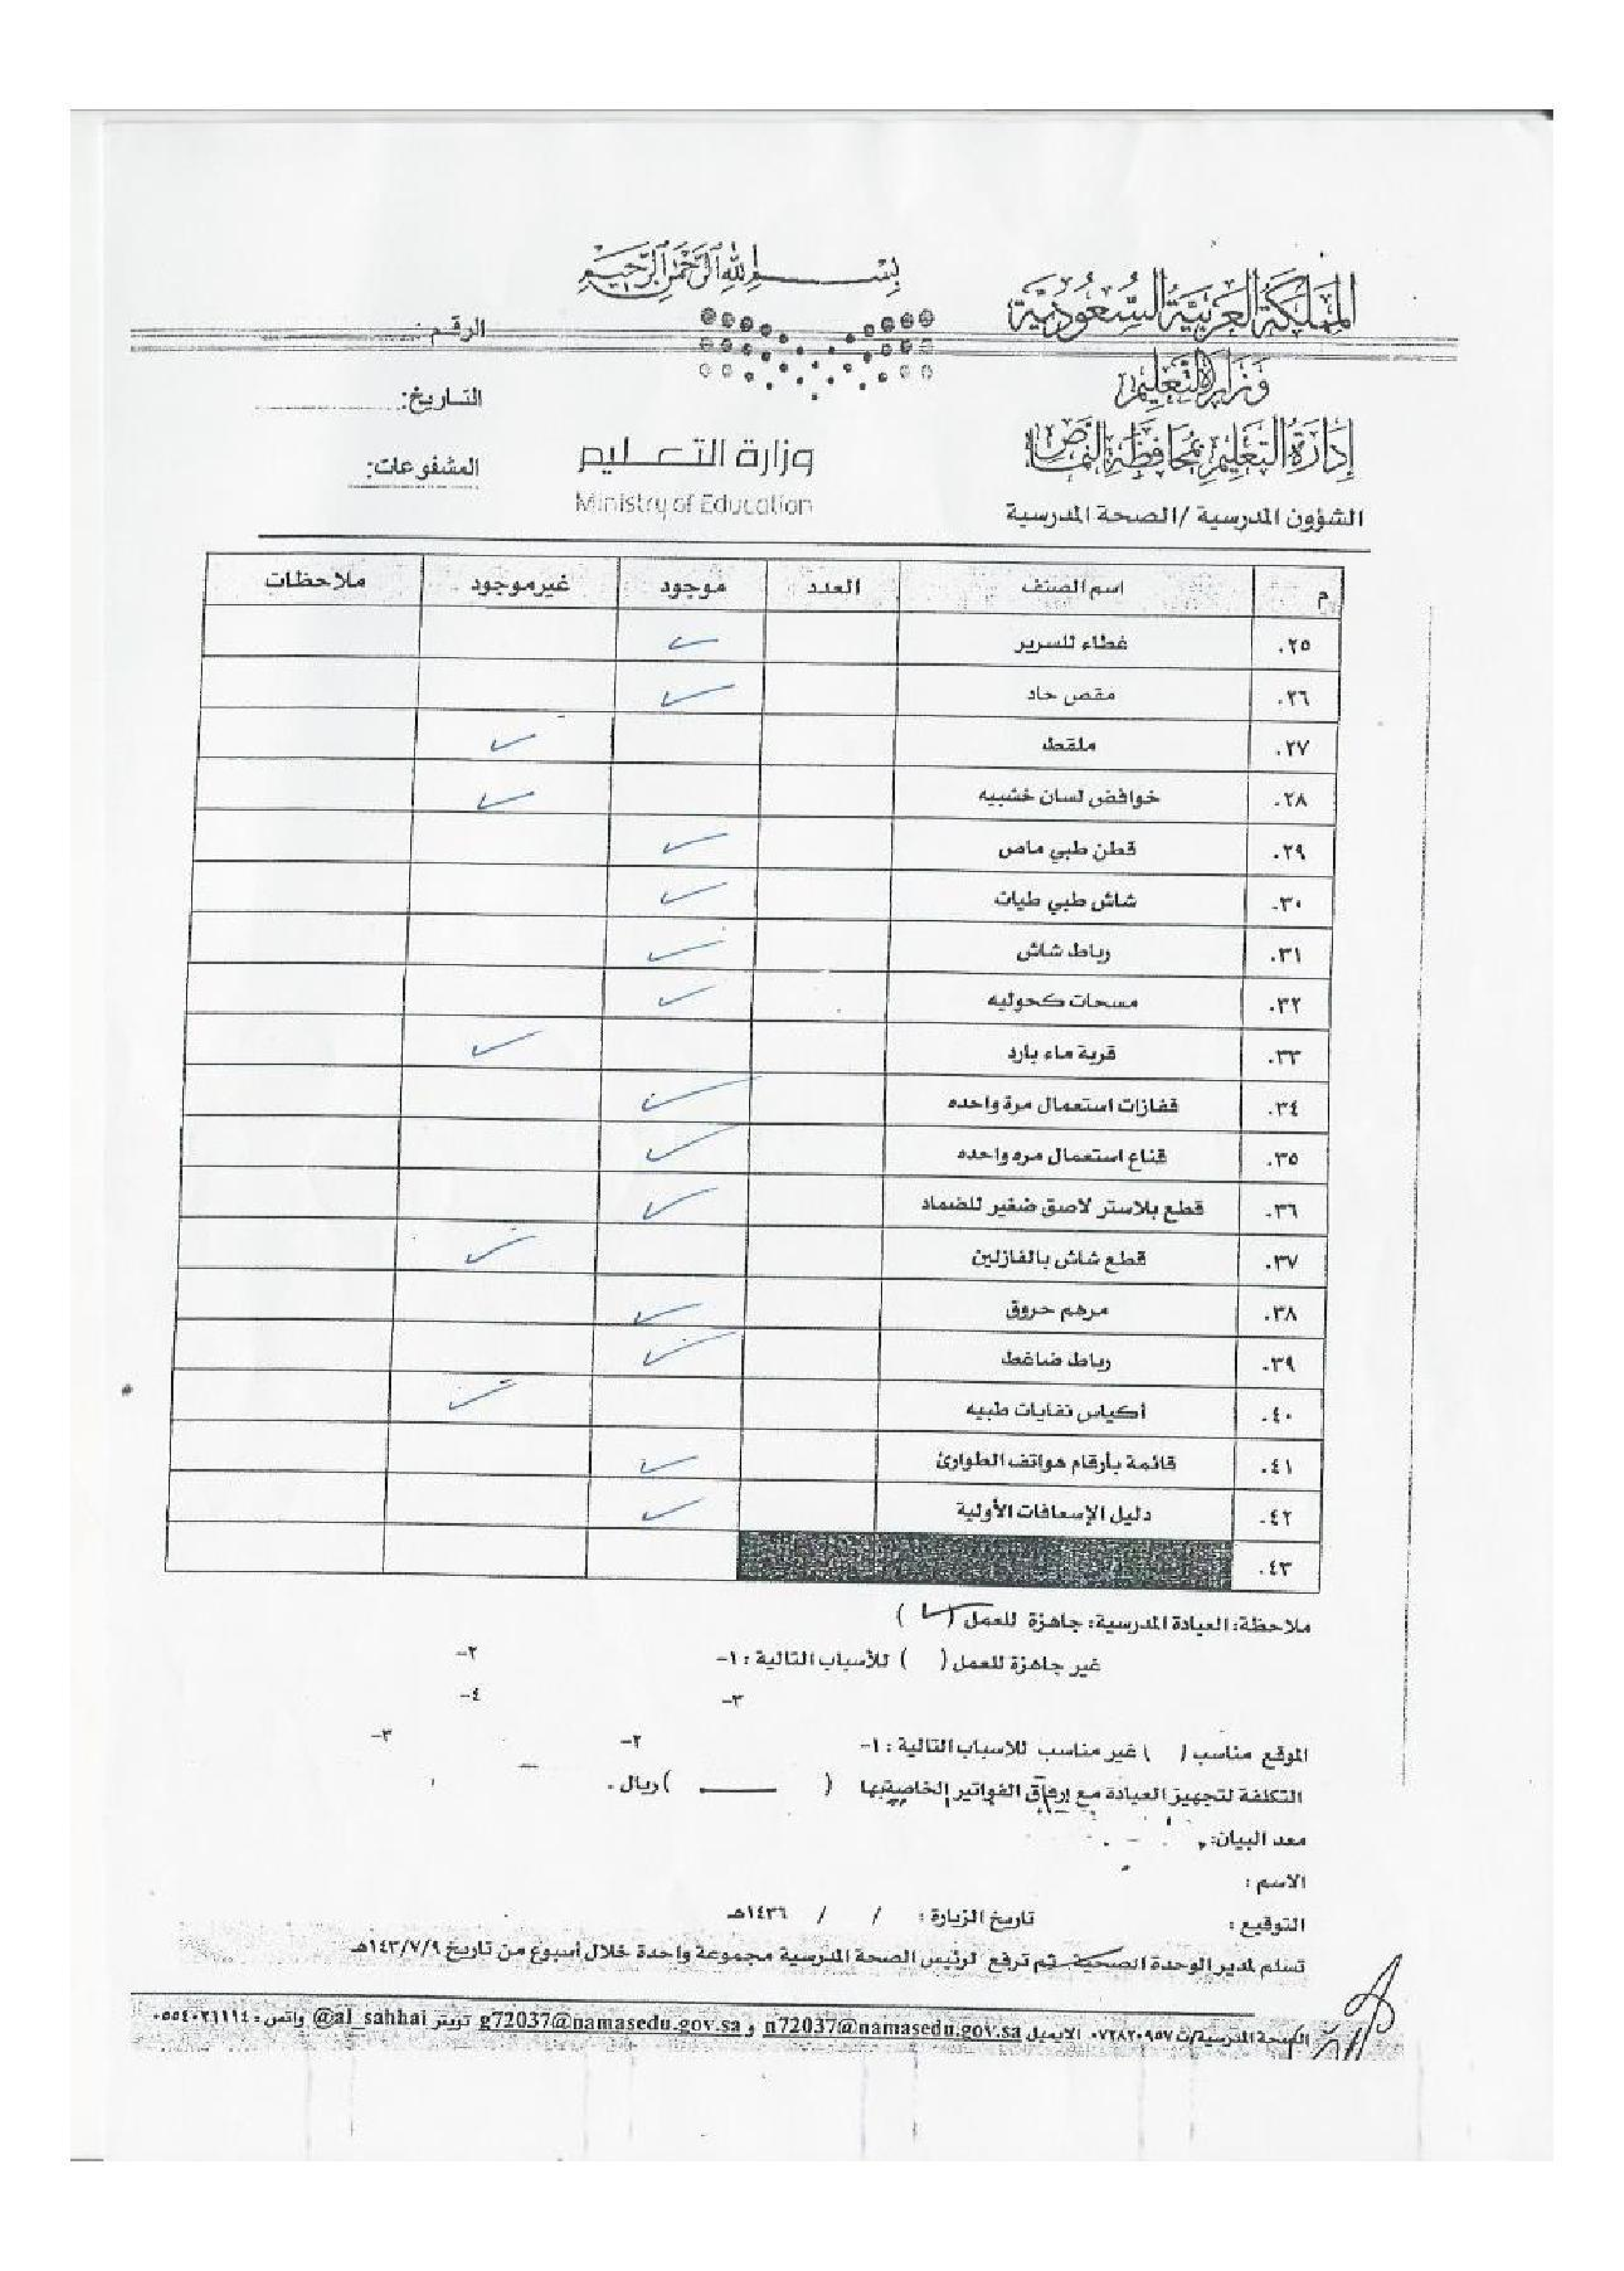 بسم الله الرحمن الرحيم
المملكة العربية السعودية
وزارة التعليم
إدارة التعليم بمحافظة النماص
الشؤون المدرسية /الصحة المدرسية
وزارة التعليم
Ministry of Education
الرقم:
التاريخ:
المشفوعات:
م اسم الصنف العدد موجود غير موجود ملاحظات
٢٥. غطاء للسرير ✓
٢٦. مقص حاد ✓
٢٧. ملقط ✓
٢٨. خوافض لسان خشبيه ✓
٢٩. قطن طبي ماص ✓
٣٠. شاش طبي طيات ✓
٣١. رباط شاش ✓
٣٢. مسحات كحوليه ✓
٣٣. قربة ماء بارد ✓
٣٤. قفازات استعمال مرة واحده ✓
٣٥. قناع استعمال مره واحده ✓
٣٦. قطع بلاستر لاصق صغير للضماد ✓
٣٧. قطع شاش بالفازلين ✓
٣٨. مرهم حروق ✓
٣٩. رباط ضاغط ✓
٤٠. أكياس نفايات طبيه ✓
٤١. قائمة بأرقام هواتف الطوارئ ✓
٤٢. دليل الإسعافات الأولية ✓
٤٣.
ملاحظة: العيادة المدرسية: جاهزة للعمل (✓)
غير جاهزة للعمل ( ) للأسباب التالية : ١- ٢-
٣- ٤-
الموقع مناسب ( ) غير مناسب للاسباب التالية : ١- ٢- ٣-
التكلفة لتجهيز العيادة مع إرفاق الفواتير الخاصة بها ( ) ريال .
معد البيان:
الاسم :
التوقيع : تاريخ الزيارة : / / ١٤٣٦هـ
تسلم لمدير الوحدة الصحية ثم ترفع لرئيس الصحة المدرسية مجموعة واحدة خلال أسبوع من تاريخ ١٤٣/٧/٩هـ
الصحة المدرسية/ت ٠٧٢٨٢٠٩٥٧ الايميل n72037@namasedu.gov.sa و g72037@namasedu.gov.sa تويتر @al_sahhai واتس : ٠٥٥٤٠٣١١١٤